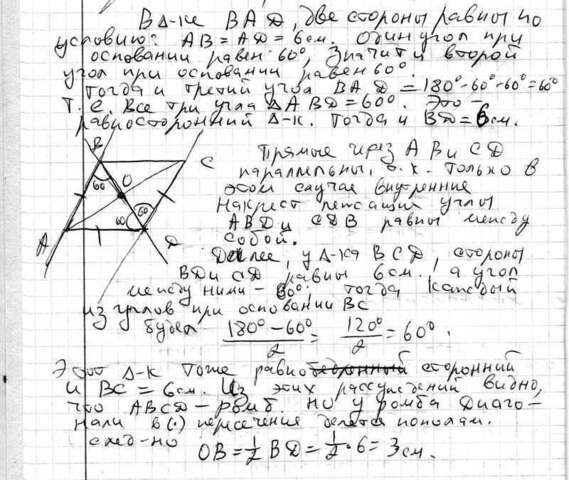 В Δ-ке BAD, две стороны равны по
условию: AB = AD = 6 см. Один угол при
основании равен 60°, значит и второй
угол при основании равен 60°.
Тогда и третий угол BAD = 180°-60°-60°=60°
Т.е. Все три угла Δ ABD = 60°. Это -
равносторонний Δ-к. Тогда и BD = 6 см.
B
C
O
60
60
60
A
D
Прямые через AB и CD
параллельны, т.к. только в
этом случае внутренние
накрест лежащий углы
ABD и CDB равны между
собой.
Далее, у Δ-ка BCD, стороны
BD и CD равны 6 см, а угол
между ними - 60° тогда каждый
из углов при основании BC
будет (180° - 60°)/2 = 120°/2 = 60°.
Этот Δ-к тоже равно сторонний
и BC = 6 см. Из этих рассуждений видно,
что ABCD - ромб. Но у ромба диаго-
нали в (·) пересечения делятся пополам.
след-но
OB = 1/2 BD = 1/2 · 6 = 3 см.